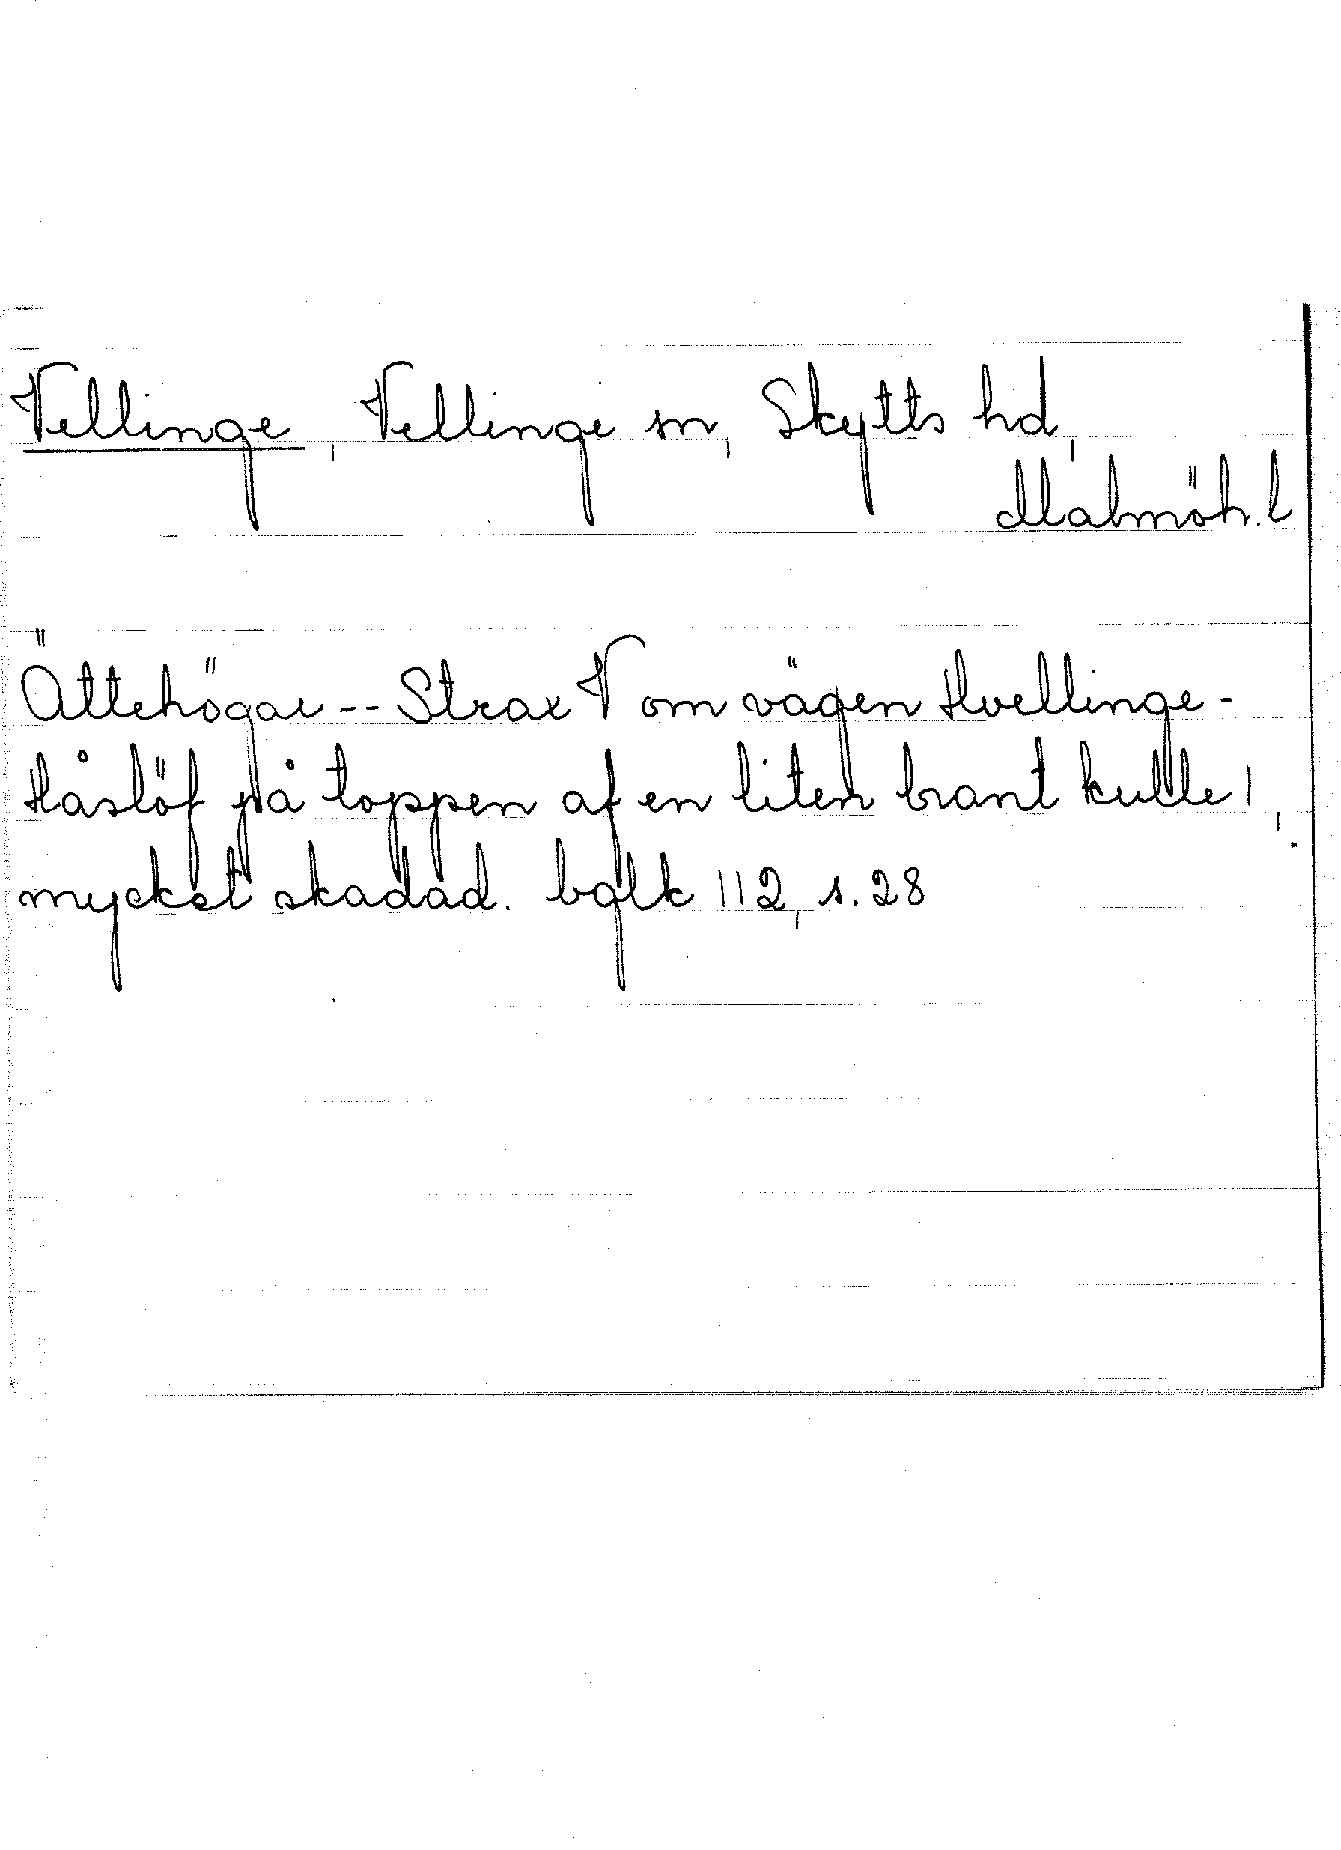 Vellinge, Vellinge sn, Skytts hd,
Malmöh. l
Ättehögar -- Strax V om vägen Hvellinge-
Håslöf på toppen af en liten brant kulle,
mycket skadad. bglk 112, s. 28